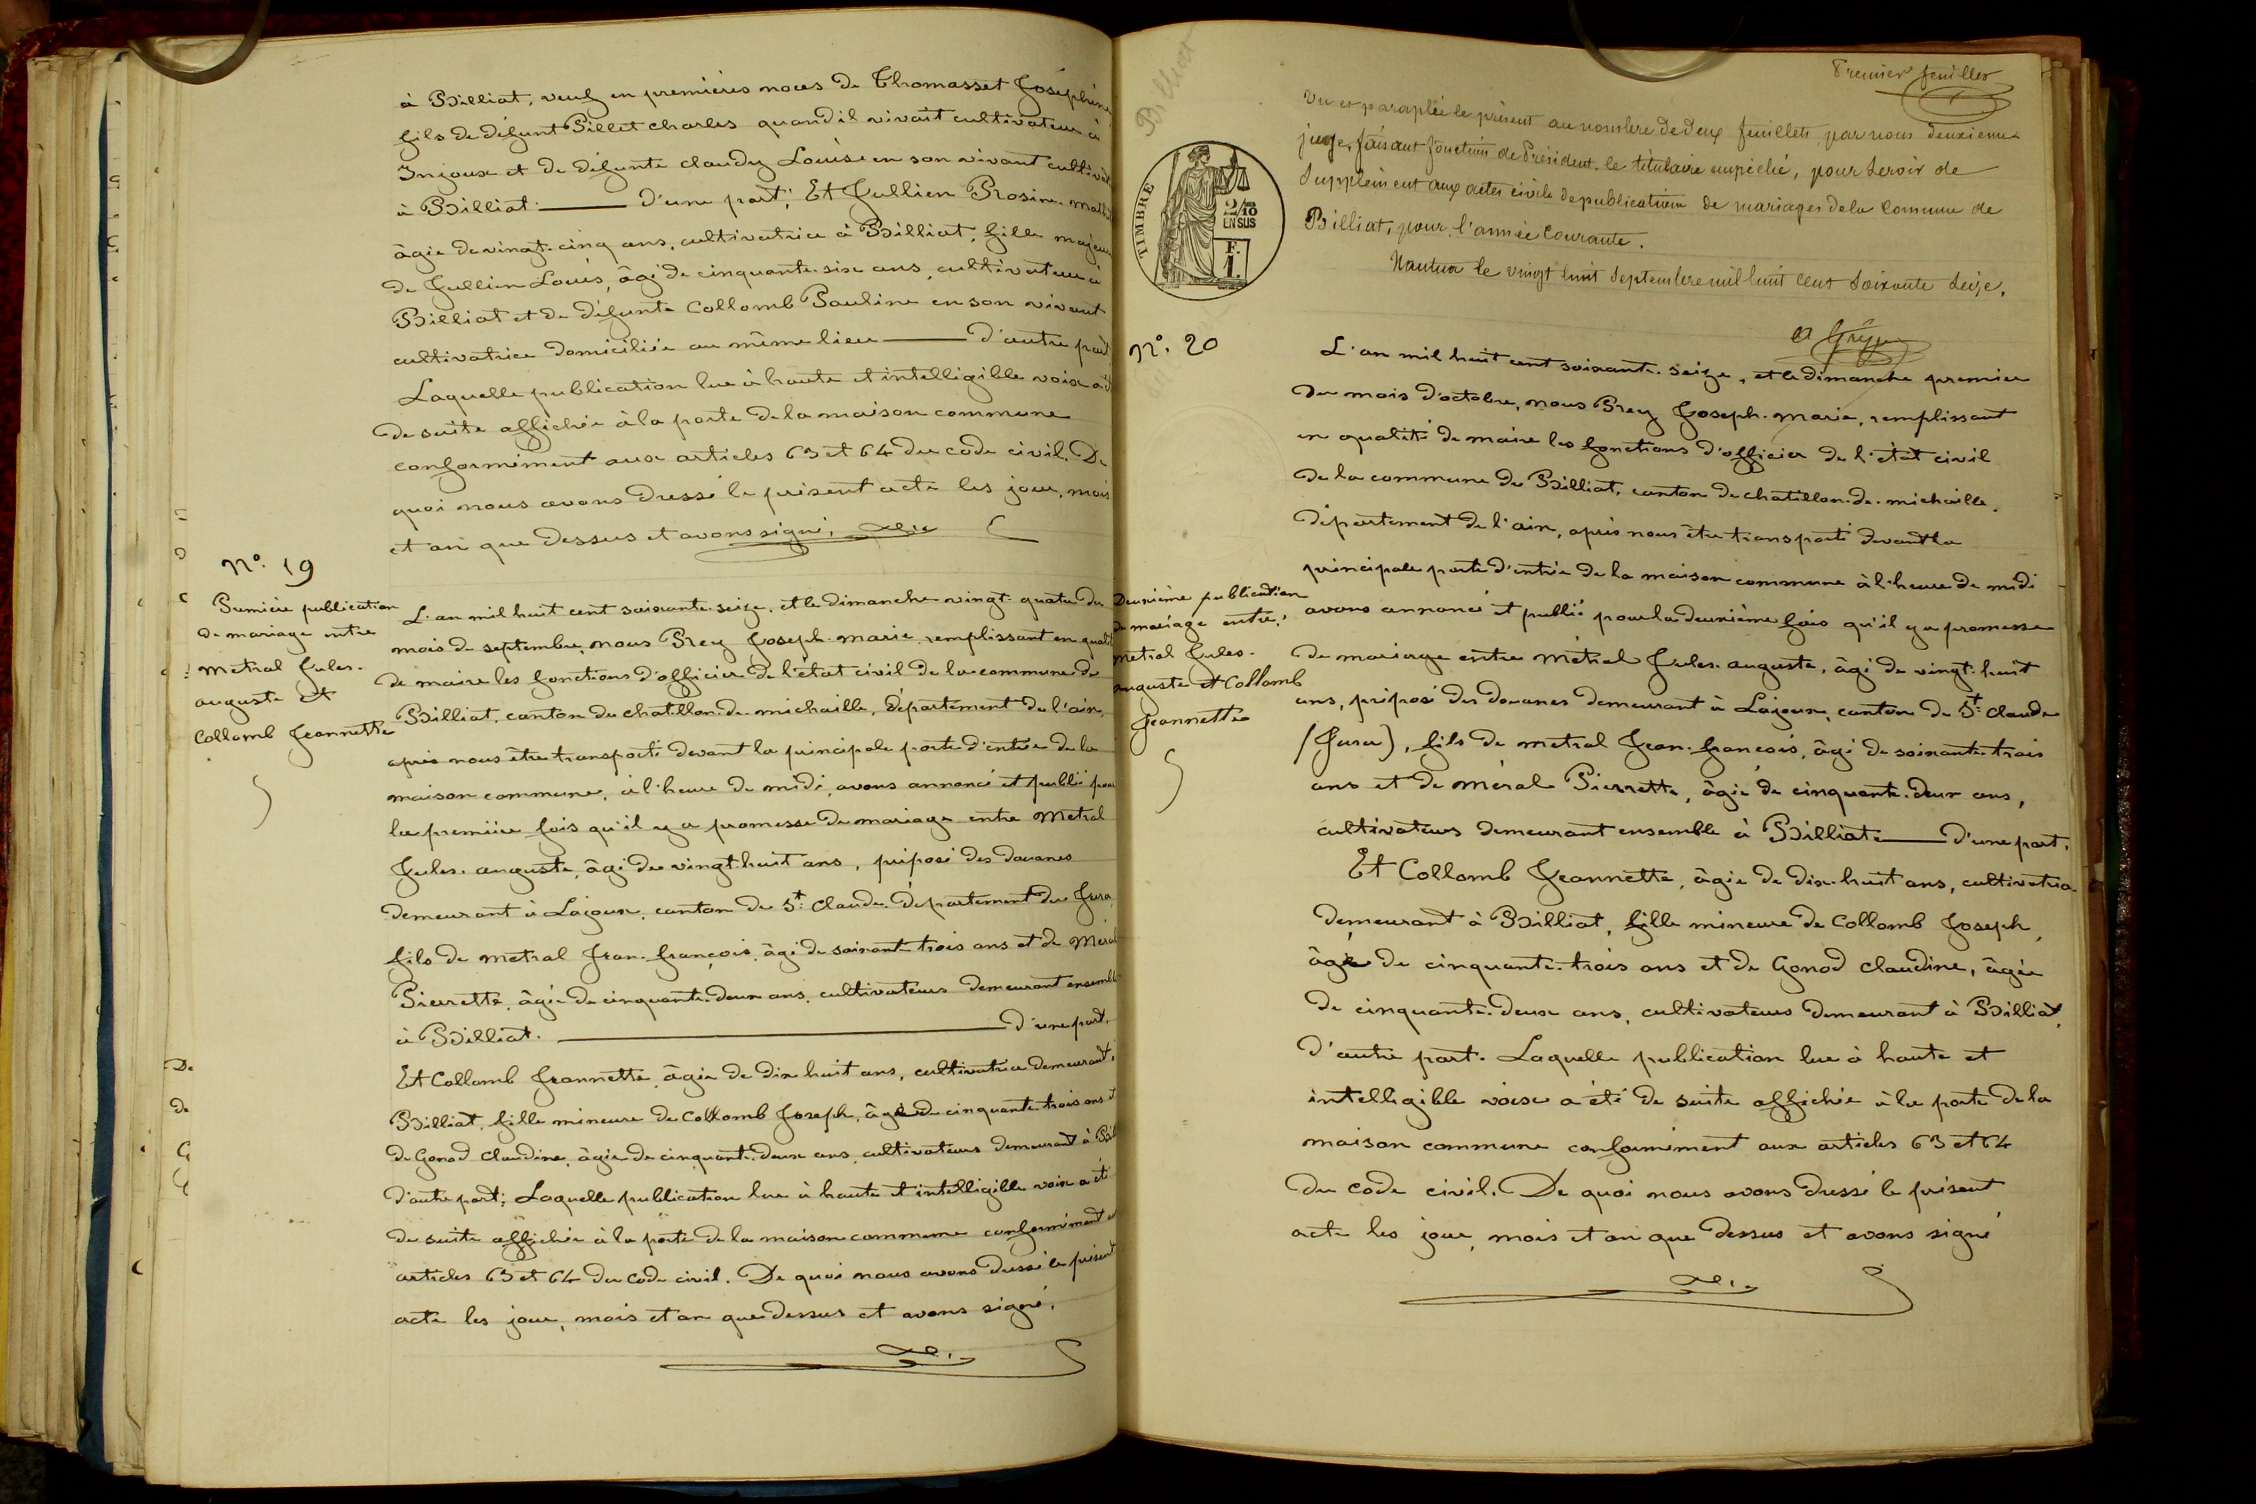 à Billiat, veuf en premières noces de Thomasset Joséphine
fils de défunt Pillet charles quand il vivait cultivateur à
Injoux et de défunte claudy Louise en son vivant cultivat
à Billiat. d'une part; Et Jullien Rosine
âgée de vingt-cinq ans, cultivatrice à Billiat, fille majeure
de Jullien Louis, âgé de cinquante-six ans, cultivateur à
Billiat et de défunte Collomb Pauline en son vivant
cultivatrice domiciliée au même lieu d'autre part
Laquelle publication lue à haute et intelligible voix a été
de suite affichée à la porte de la maison commune
conformément aux articles 63 et 64 du code civil. De
quoi nous avons dressé le présent acte les jour, mois
et an que dessus et avons signé.
N° 19
Première publication
de mariage entre
Metral Jules-
auguste et
Collomb Jeannette
L'an mil huit cent soixante-seize, et le dimanche vingt-quatre du
mois de septembre, nous Prey Joseph-marie, remplissant en qualité
de maire les fonctions d'officier de l'état civil de la commune de
Billiat, canton de chatillon-de-michaille, département de l'ain,
après nous être transporté devant la principale porte d'entrée de la
maison commune, à l'heure de midi, avons annoncé et publié pour
la première fois qu'il y a promesse de mariage entre Metral
Jules-auguste, âgé de vingt-huit ans, préposé des douanes
demeurant à Lajoux, canton de St. Claude, département du Jura,
fils de metral Jean-françois, âgé de soixante-trois ans et de Méral
Pierrette, âgée de cinquante-deux ans, cultivateurs demeurant ensemble
à Billiat. d'une part.
Et Collomb Jeannette, âgée de dix-huit ans, cultivatrice demeurant à
Billiat, fille mineure de Collomb Joseph, âgé de cinquante-trois ans et
de Gonod Claudine, âgée de cinquante-deux ans, cultivateurs demeurant à Bil
d'autre part; Laquelle publication lue à haute et intelligible voix a été
de suite affichée à la porte de la maison commune conformément
articles 63 et 64 du code civil. De quoi nous avons dressé le présent
acte les jour, mois et an que dessus et avons signé.
Billiat
TIMBRE
2/10
EN SUS
F.
1.
Premier feuillet
Vu et paraphé le présent au nombre de deux feuillets, par nous deuxième
juge, faisant fonction de Président, le titulaire empêché, pour servir de
supplément aux actes civils de publication de mariages de la Commune de
Billiat, pour l'année courante.
Nantua le vingt huit septembre mil huit cent soixante seize.
N° 20
Deuxième publication
de mariage entre
Metral Jules-
auguste et Collomb
Jeannette
L'an mil huit cent soixante-seize, et le dimanche premier
du mois d'octobre, nous Prey Joseph-marie, remplissant
en qualité de maire les fonctions d'officier de l'état civil
de la commune de Billiat, canton de chatillon-de-michaille,
département de l'ain, après nous être transporté devant la
principale porte d'entrée de la maison commune à l'heure de midi
avons annoncé et publié pour la deuxième fois qu'il y a promesse
de mariage entre Métral Jules-auguste, âgé de vingt-huit
ans, préposé des douanes demeurant à Lajoux, canton de St. Claude
(Jura), fils de metral Jean-françois, âgé de soixante-trois
ans et de Méral Pierrette, âgée de cinquante-deux ans,
cultivateurs demeurant ensemble à Billiat d'une part.
Et Collomb Jeannette, âgée de dix-huit ans, cultivatrice
demeurant à Billiat, fille mineure de Collomb Joseph,
âgé de cinquante-trois ans et de Gonod Claudine, âgée
de cinquante-deux ans, cultivateurs demeurant à Billiat,
d'autre part. Laquelle publication lue à haute et
intelligible voix a été de suite affichée à la porte de la
maison commune conformément aux articles 63 et 64
du code civil. De quoi nous avons dressé le présent
acte les jour, mois et an que dessus et avons signé